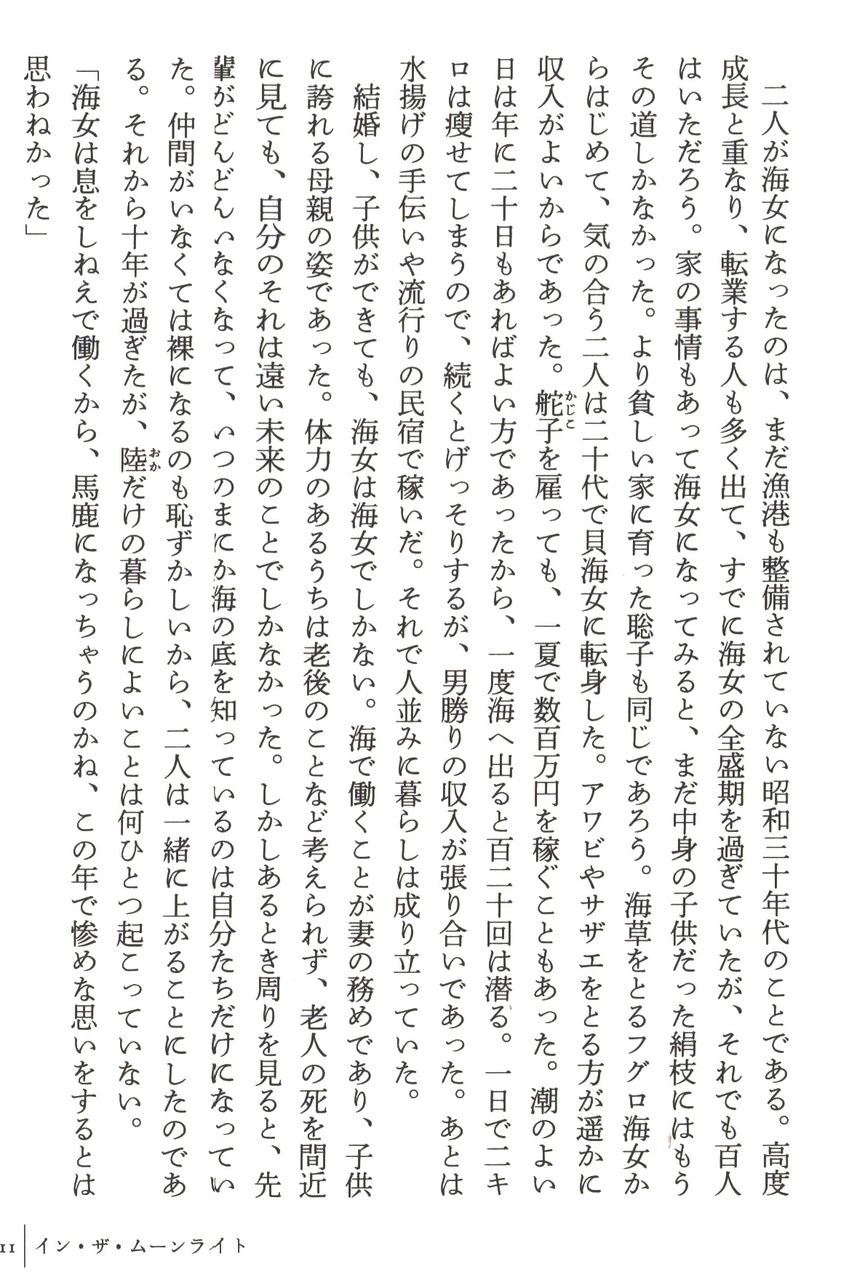 二人が海女になったのは、まだ漁港も整備されていない昭和三十年代のことである。高度
成長と重なり、転業する人も多く出て、すでに海女の全盛期を過ぎていたが、それでも百人
はいただろう。家の事情もあって海女になってみると、まだ中身の子供だった絹枝にはもう
その道しかなかった。より貧しい家に育った聡子も同じであろう。海草をとるフグロ海女か
らはじめて、気の合う二人は二十代で貝海女に転身した。アワビやサザエをとる方が遥かに
収入がよいからであった。舵子かじこを雇っても、一夏で数百万円を稼ぐこともあった。潮のよい
日は年に二十日もあればよい方であったから、一度海へ出ると百二十回は潜る。一日で二キ
ロは痩せてしまうので、続くとげっそりするが、男勝りの収入が張り合いであった。あとは
水揚げの手伝いや流行りの民宿で稼いだ。それで人並みに暮らしは成り立っていた。
結婚し、子供ができても、海女は海女でしかない。海で働くことが妻の務めであり、子供
に誇れる母親の姿であった。体力のあるうちは老後のことなど考えられず、老人の死を間近
に見ても、自分のそれは遠い未来のことでしかなかった。しかしあるとき周りを見ると、先
輩がどんどんいなくなって、いつのまにか海の底を知っているのは自分たちだけになってい
た。仲間がいなくては裸になるのも恥ずかしいから、二人は一緒に上がることにしたのであ
る。それから十年が過ぎたが、陸おかだけの暮らしによいことは何ひとつ起こっていない。
「海女は息をしねえで働くから、馬鹿になっちゃうのかね、この年で惨めな思いをするとは
思わねかった」
11 イン・ザ・ムーンライト